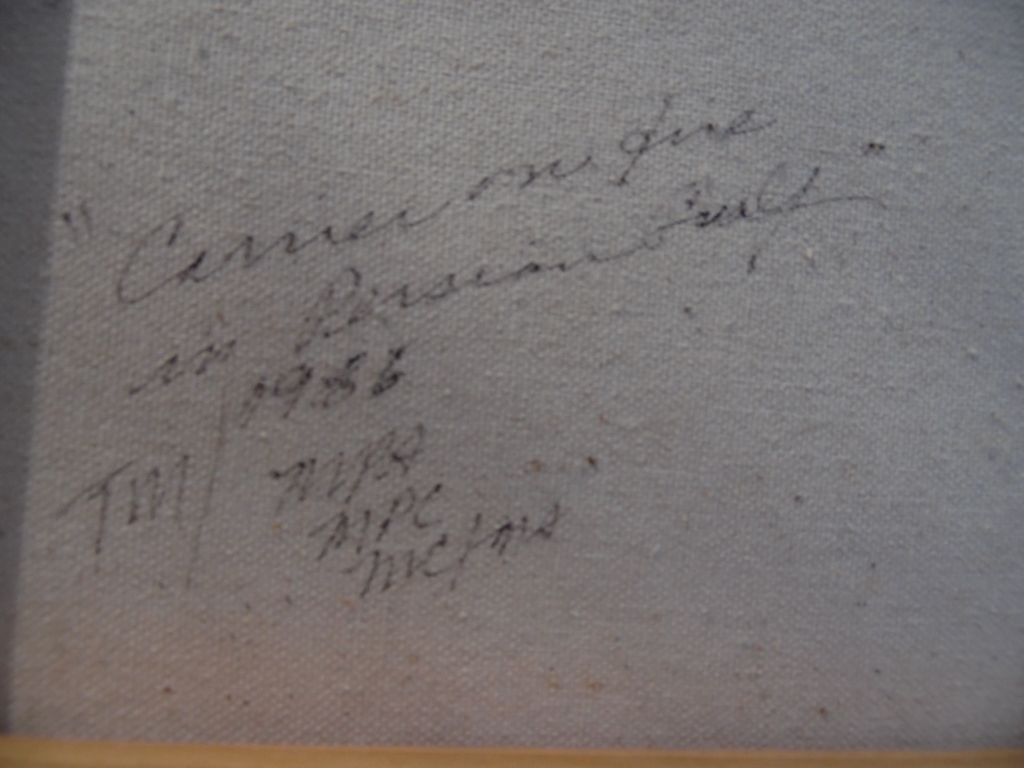 "Carrier on fire
in Persian Gulf"
1986
TM/ MPS
MPC
MC/MS